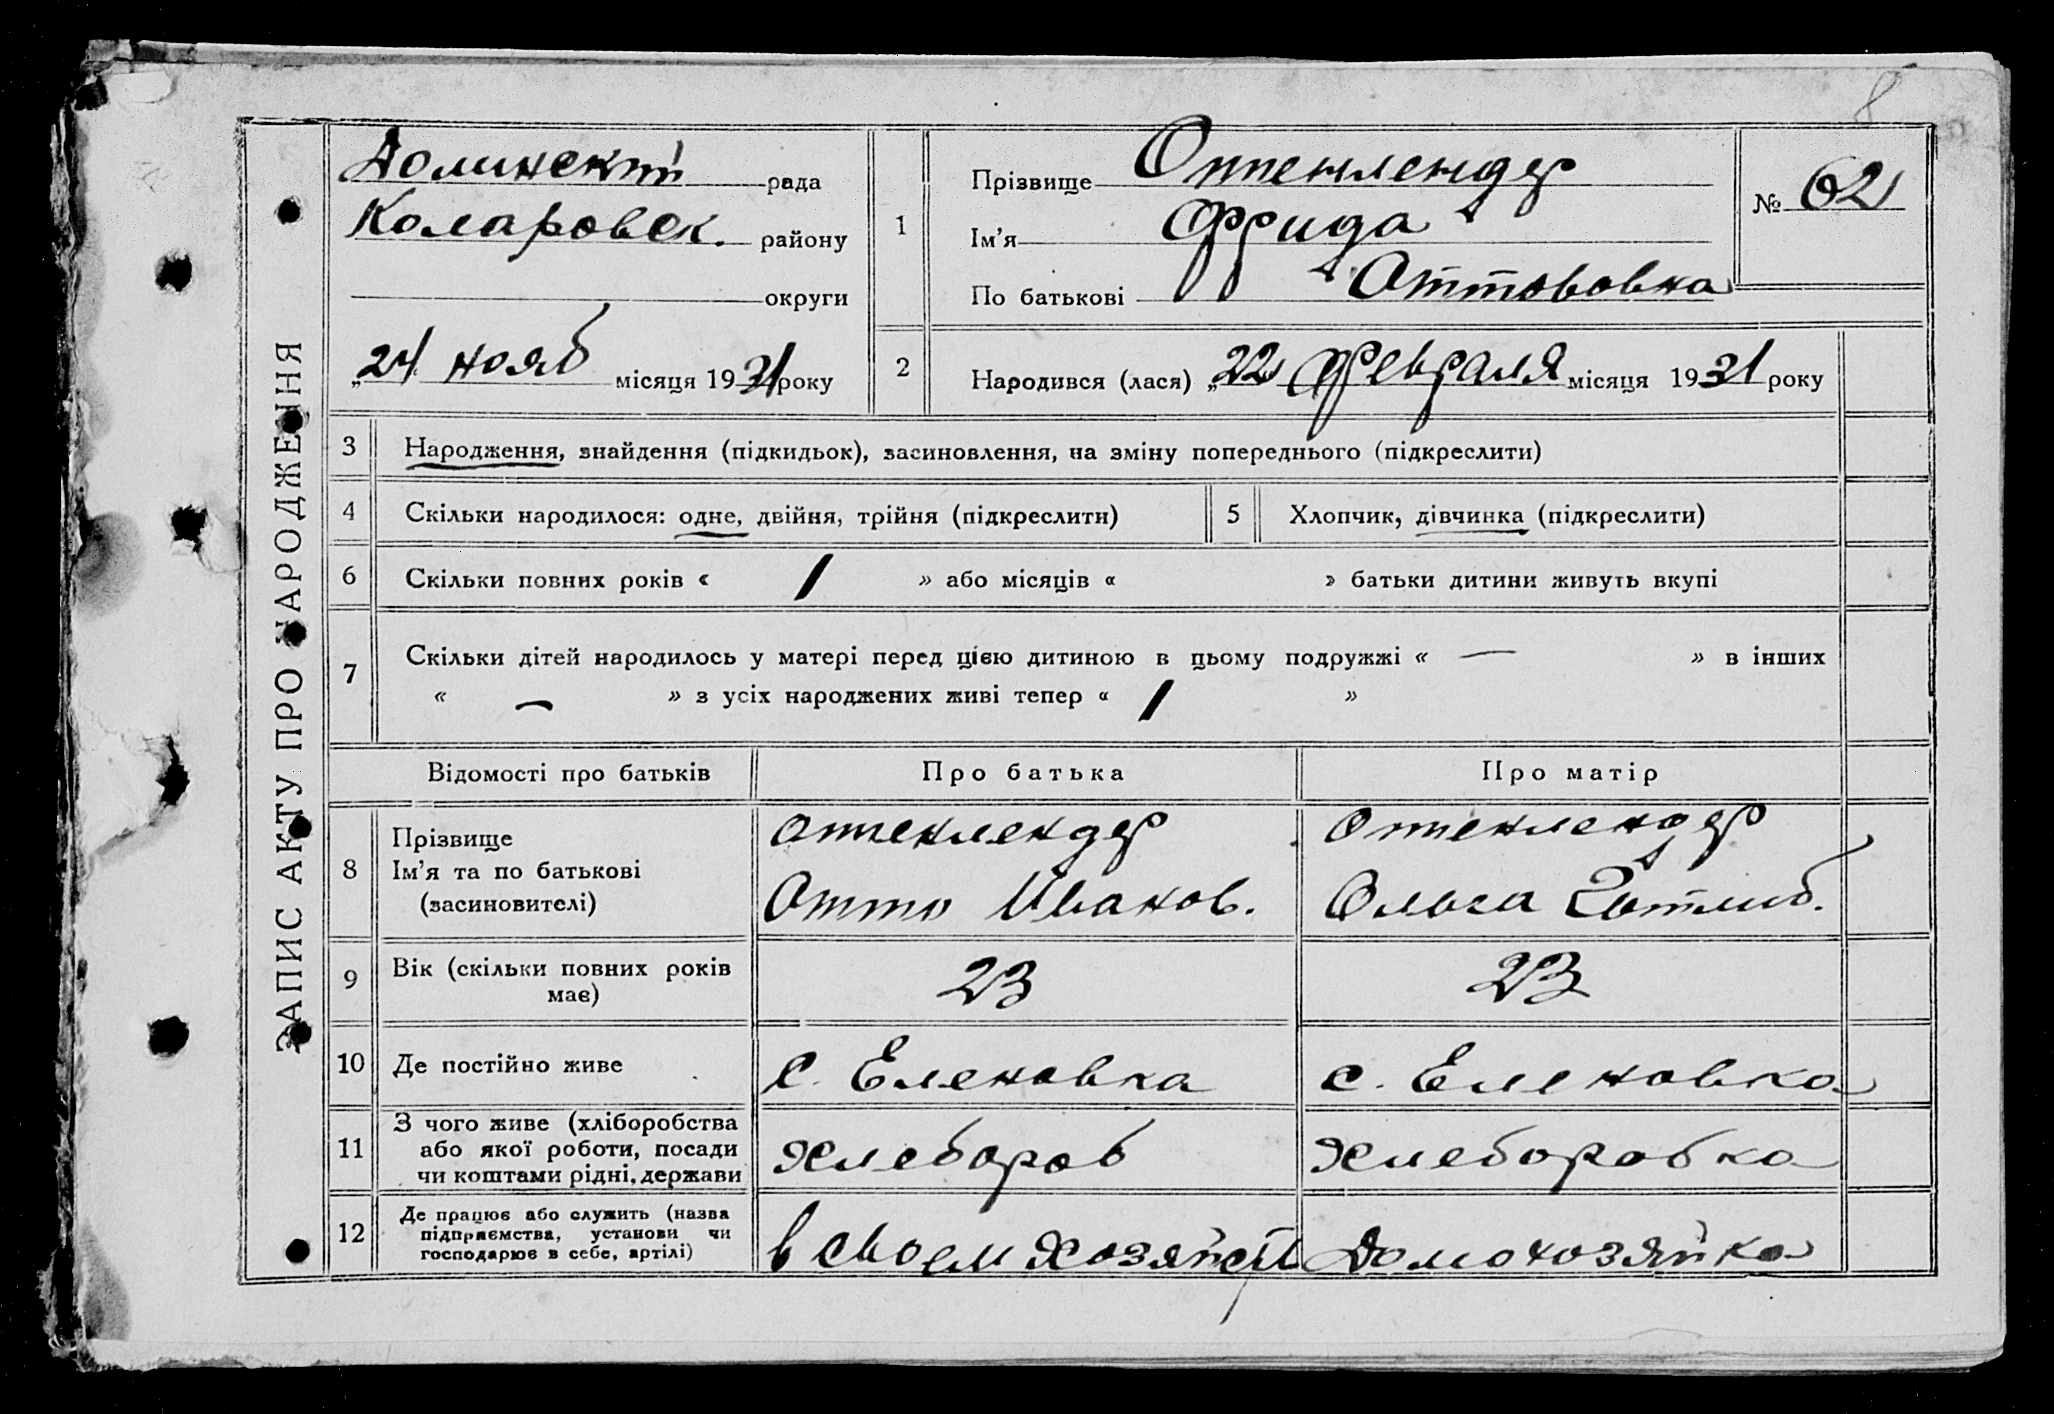 8
ЗАПИС АКТУ ПРО НАРОДЖЕННЯ
Долинский рада
Коларовск. району
округи
„24 нояб місяця 1931 року
1
Прізвище Оттенлендер
Ім'я Фрида
По батькові Оттововна
№ 62
2
Народився (лася) „22 февраля місяця 1931 року
3 Народження, знайдення (підкидьок), засиновлення, на зміну попереднього (підкреслити)
4 Скільки народилося: одне, двійня, трійня (підкреслити)
5 Хлопчик, дівчинка (підкреслити)
6 Скільки повних років « 1 » або місяців « » батьки дитини живуть вкупі
7 Скільки дітей народилось у матері перед цією дитиною в цьому подружжі « — » в інших
« — » з усіх народжених живі тепер « 1 »
Відомості про батьків
Про батька
Про матір
8
Прізвище
Ім'я та по батькові
(засиновителі)
Оттенлендер
Отто Иванов.
Оттенлендер
Ольга Готлиб.
9
Вік (скільки повних років
має)
23
23
10 Де постійно живе
с. Еленовка
с. Еленовка
11
З чого живе (хліборобства
або якої роботи, посади
чи коштами рідні, держави
хлебороб
хлеборобка
12
Де працює або служить (назва
підприємства, установи чи
господарює в себе, артілі)
в своем хозяйст
Домохозяйка